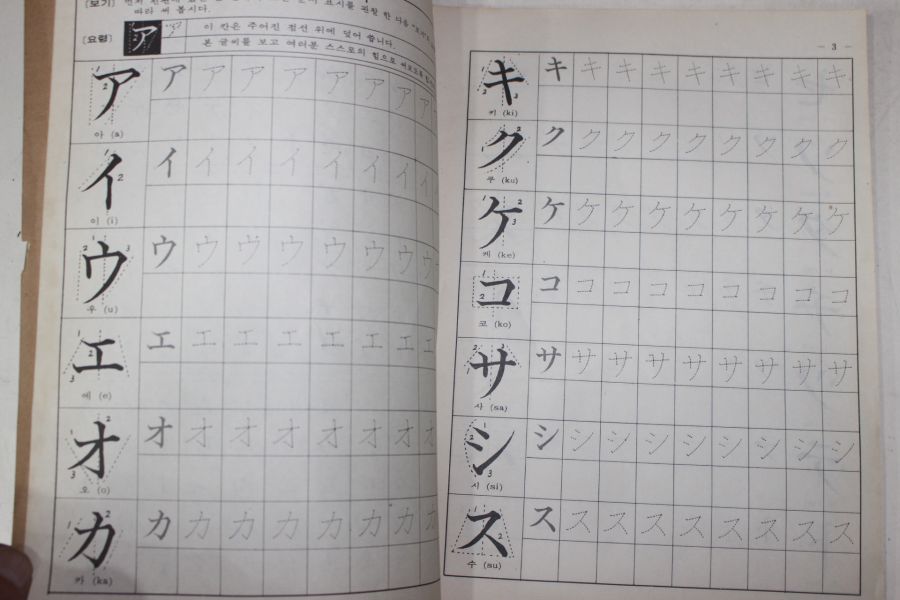 [보기]
따라 써 봅시다.
[요령] ア 이 칸은 주어진 점선 위에 덮어 씁니다.
본 글씨를 보고 여러분 스스로의 힘으로
ア ア ア ア ア ア ア ア
아 (a)
イ イ イ イ イ イ イ イ
이 (i)
ウ ウ ウ ウ ウ ウ ウ ウ
우 (u)
エ エ エ エ エ エ エ エ
에 (e)
オ オ オ オ オ オ オ オ
오 (o)
カ カ カ カ カ カ カ カ
카 (ka)
- 3 -
キ キ キ キ キ キ キ キ キ キ
키 (ki)
ク ク ク ク ク ク ク ク ク ク
쿠 (ku)
ケ ケ ケ ケ ケ ケ ケ ケ ケ ケ
케 (ke)
コ コ コ コ コ コ コ コ コ コ
코 (ko)
サ サ サ サ サ サ サ サ サ サ
사 (sa)
シ シ シ シ シ シ シ シ シ シ
시 (si)
ス ス ス ス ス ス ス ス ス ス
수 (su)